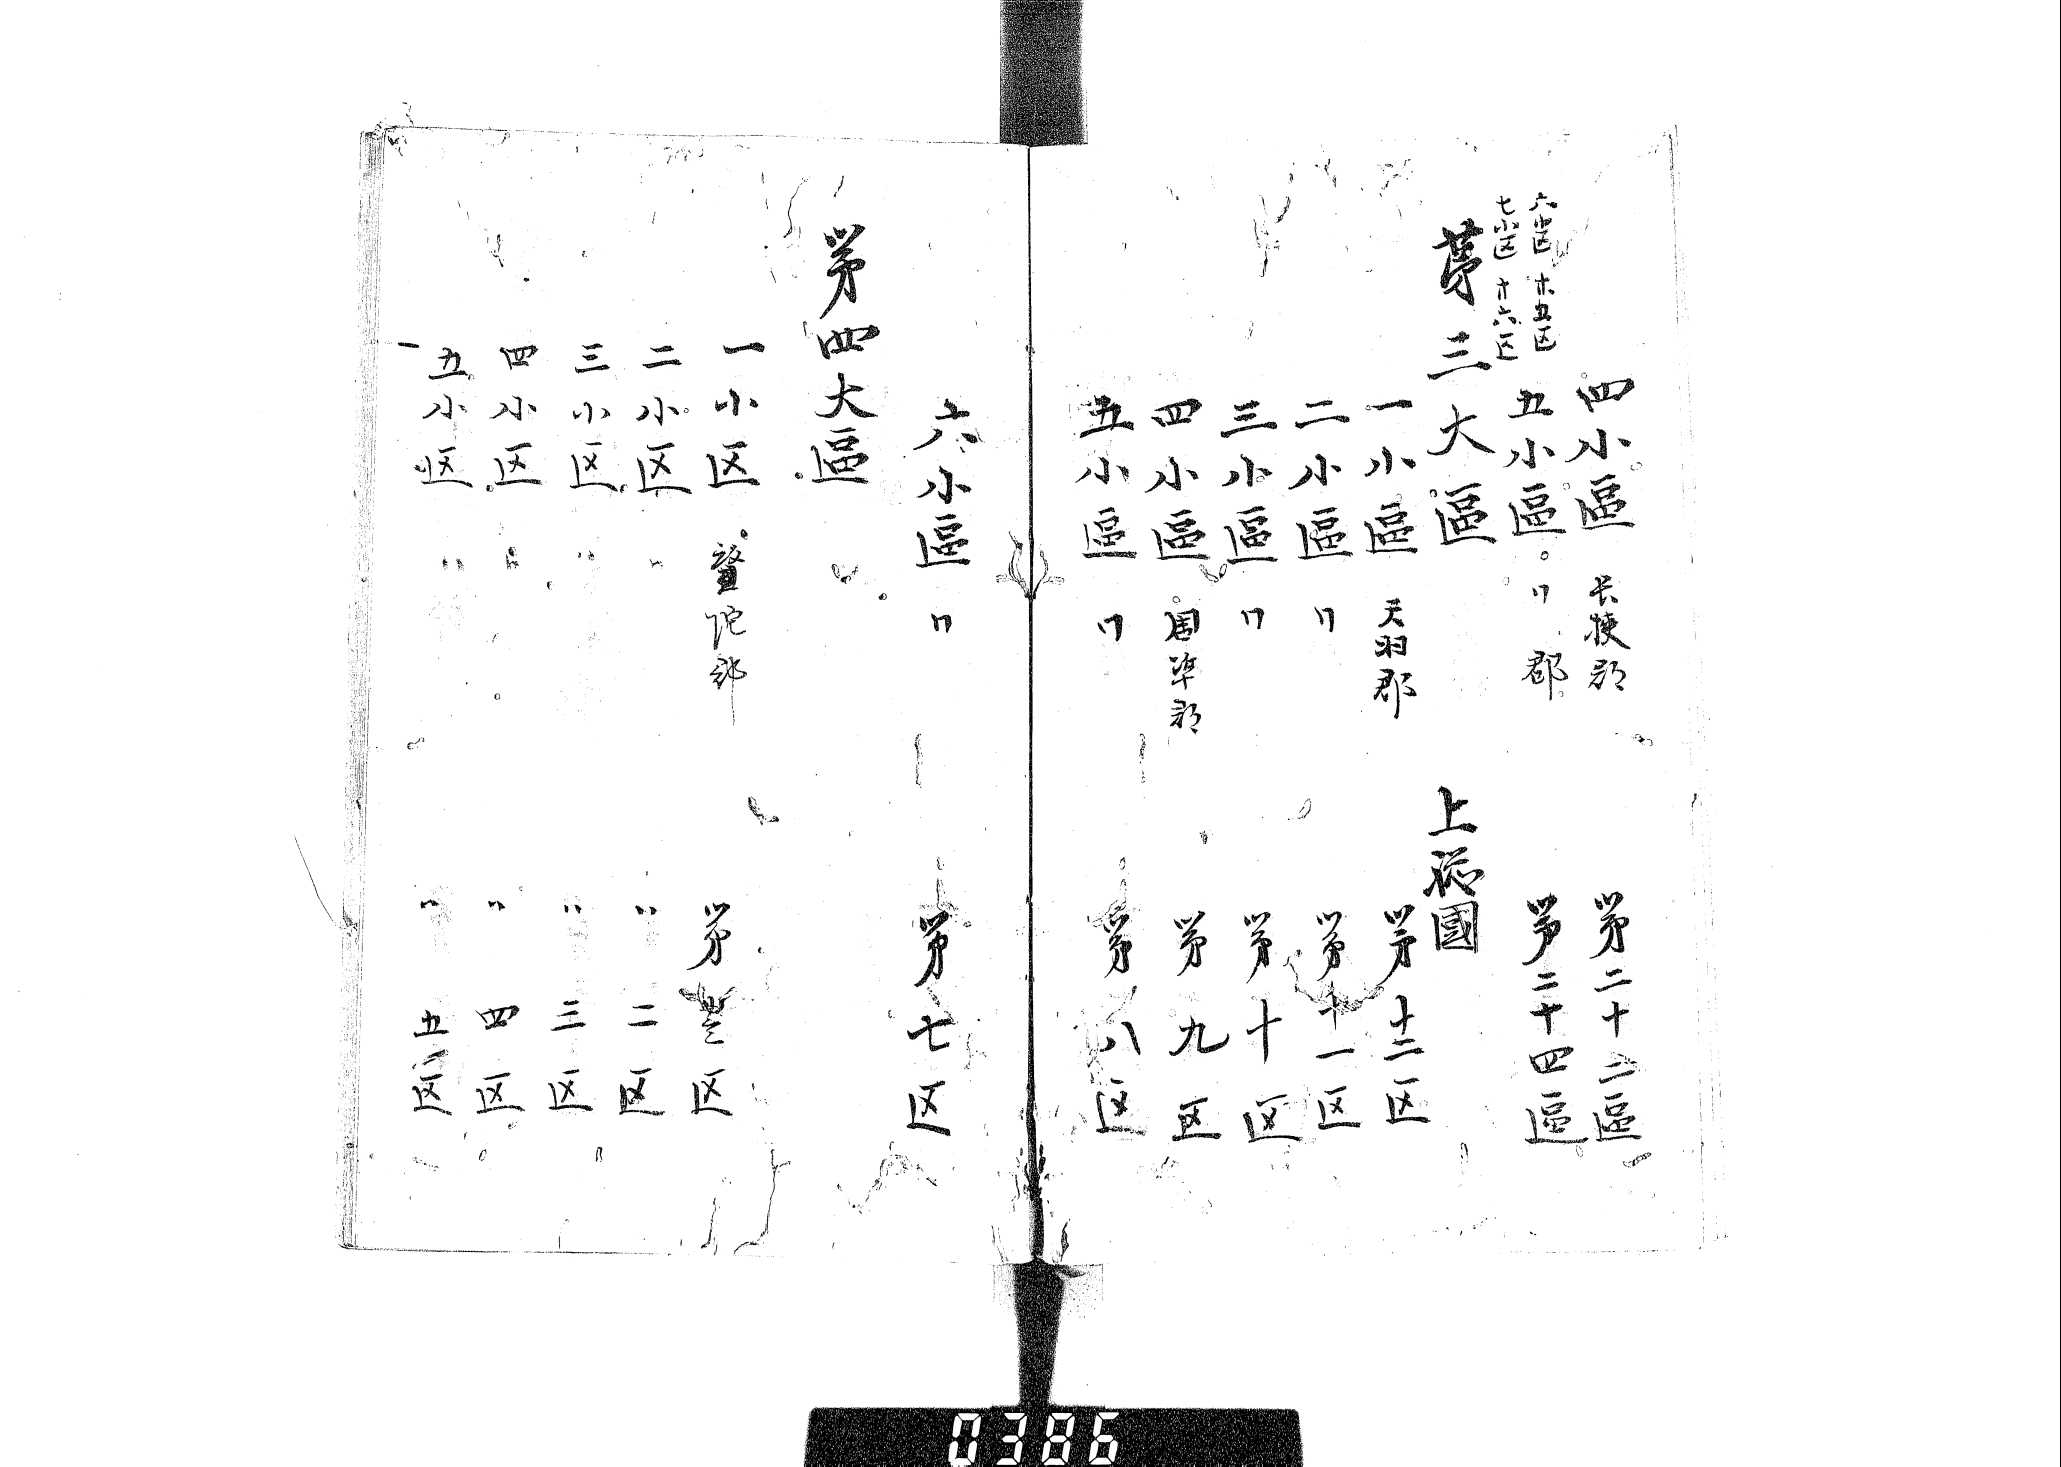 四小區 長狹郡 第二十二區
五小區 〃郡 第二十四區
六小区 十五区
七小区 十六区
第三大區 上総國
一小區 天羽郡 第十二区
二小區 〃 第十一区
三小區 〃 第十区
四小區 周準郡 第九区
五小區 〃 第八区
六小區 〃 第七区
第四大區
一小区 望陀郡 第区
二小区 〃 〃二区
三小区 〃 〃三区
四小区 〃 〃四区
五小区 〃 〃五区
0386